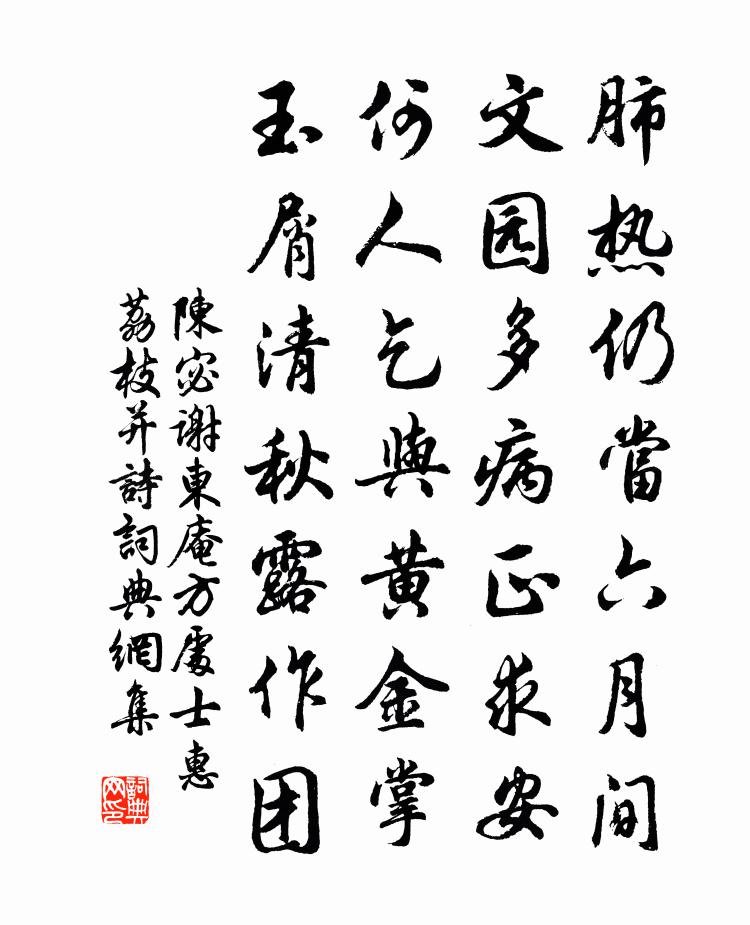 肺热仍當六月间
文园多病正求安
何人乞與黄金掌
玉屑清秋露作团
陳宓謝東庵方處士惠
荔枝并詩詞典網集
詞典网印